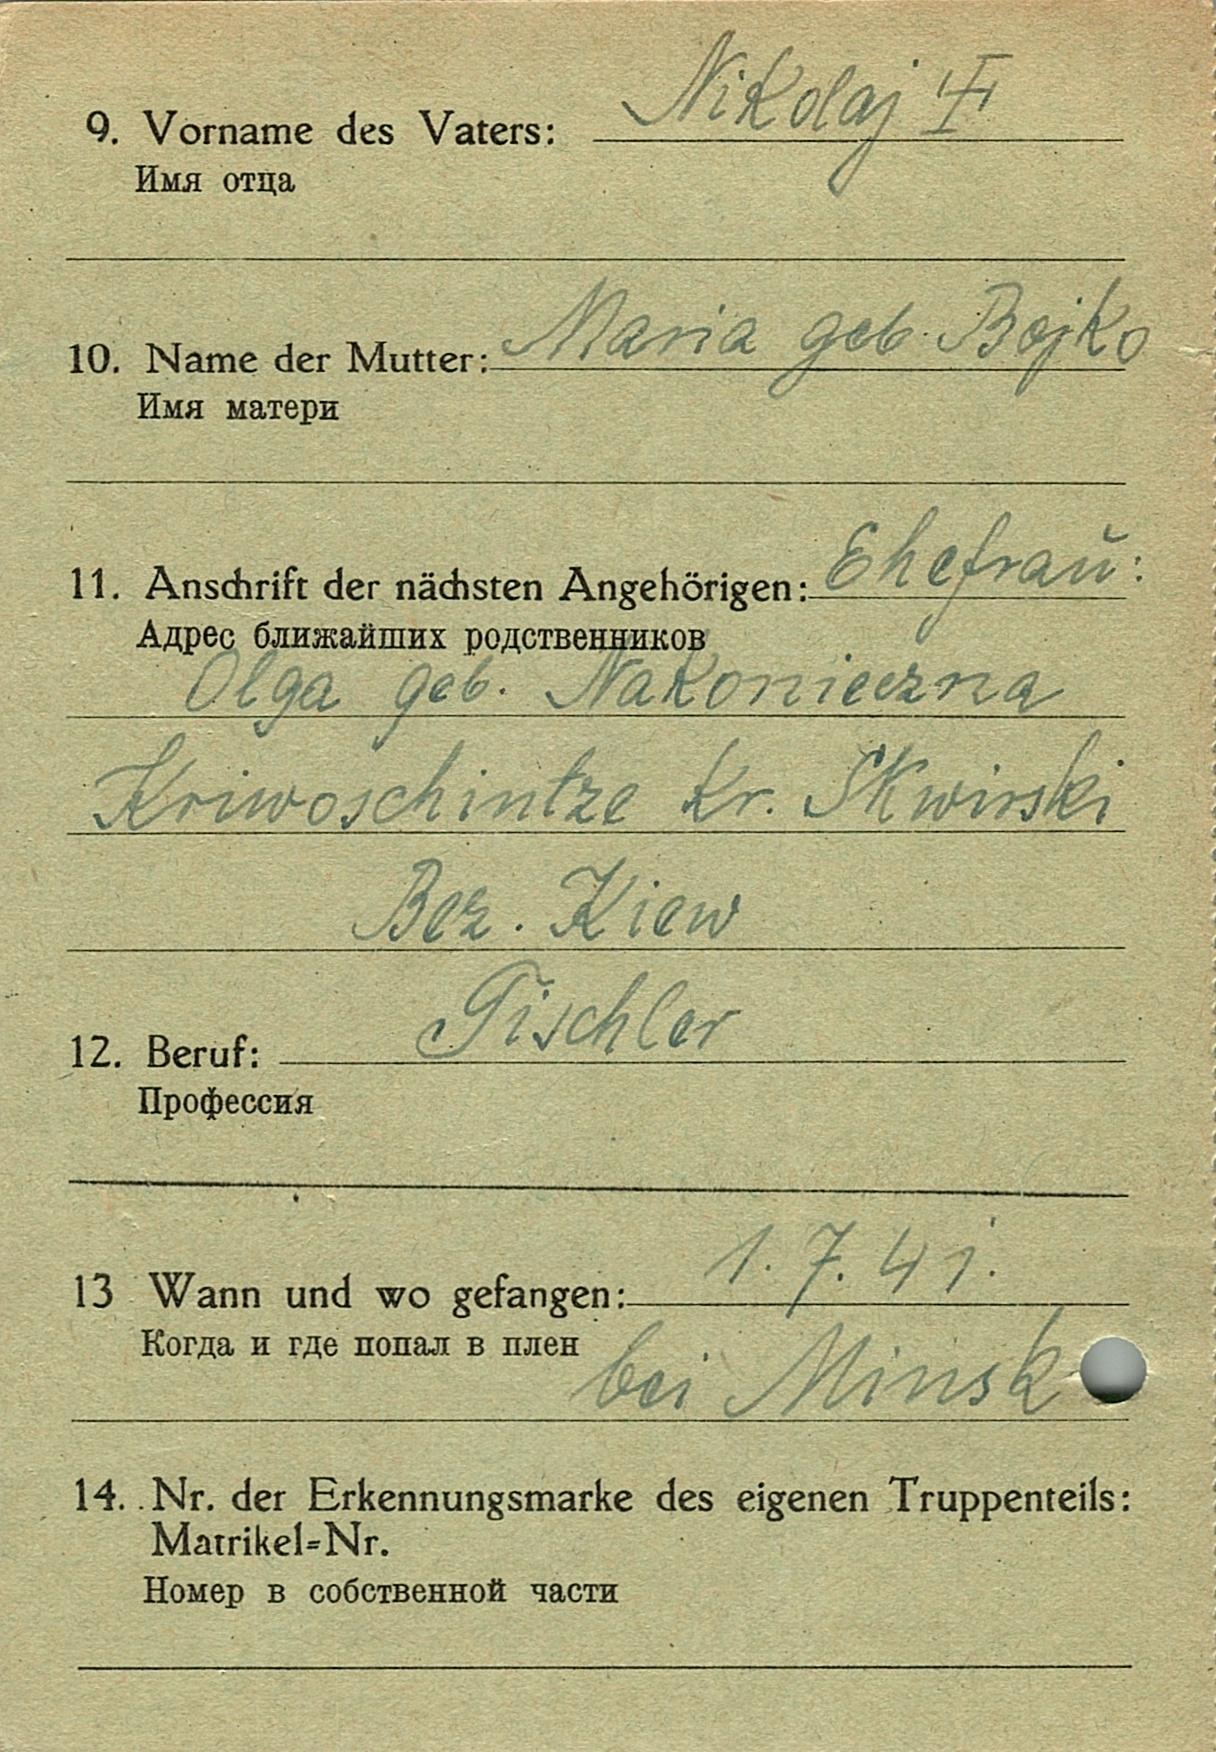 9. Vorname des Vaters: Nikolaj
Имя отца
10. Name der Mutter: Maria geb. Bojko
Имя матери
11. Anschrift der nächsten Angehörigen: Ehefraŭ:
Адрес ближайших родственников
Olga geb. Nakonieczna
Kriwoschintze Kr. Skwirski
Bez. Kiew
12. Beruf: Tischler
Профессия
13 Wann und wo gefangen: 1.7.41.
Когда и где попал в плен
bei Minsk
14. Nr. der Erkennungsmarke des eigenen Truppenteils:
Matrikel=Nr.
Номер в собственной части